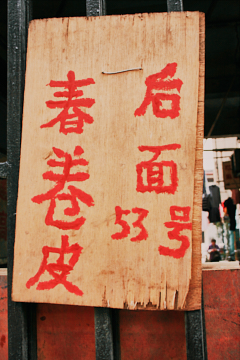 春卷皮
后面
53号